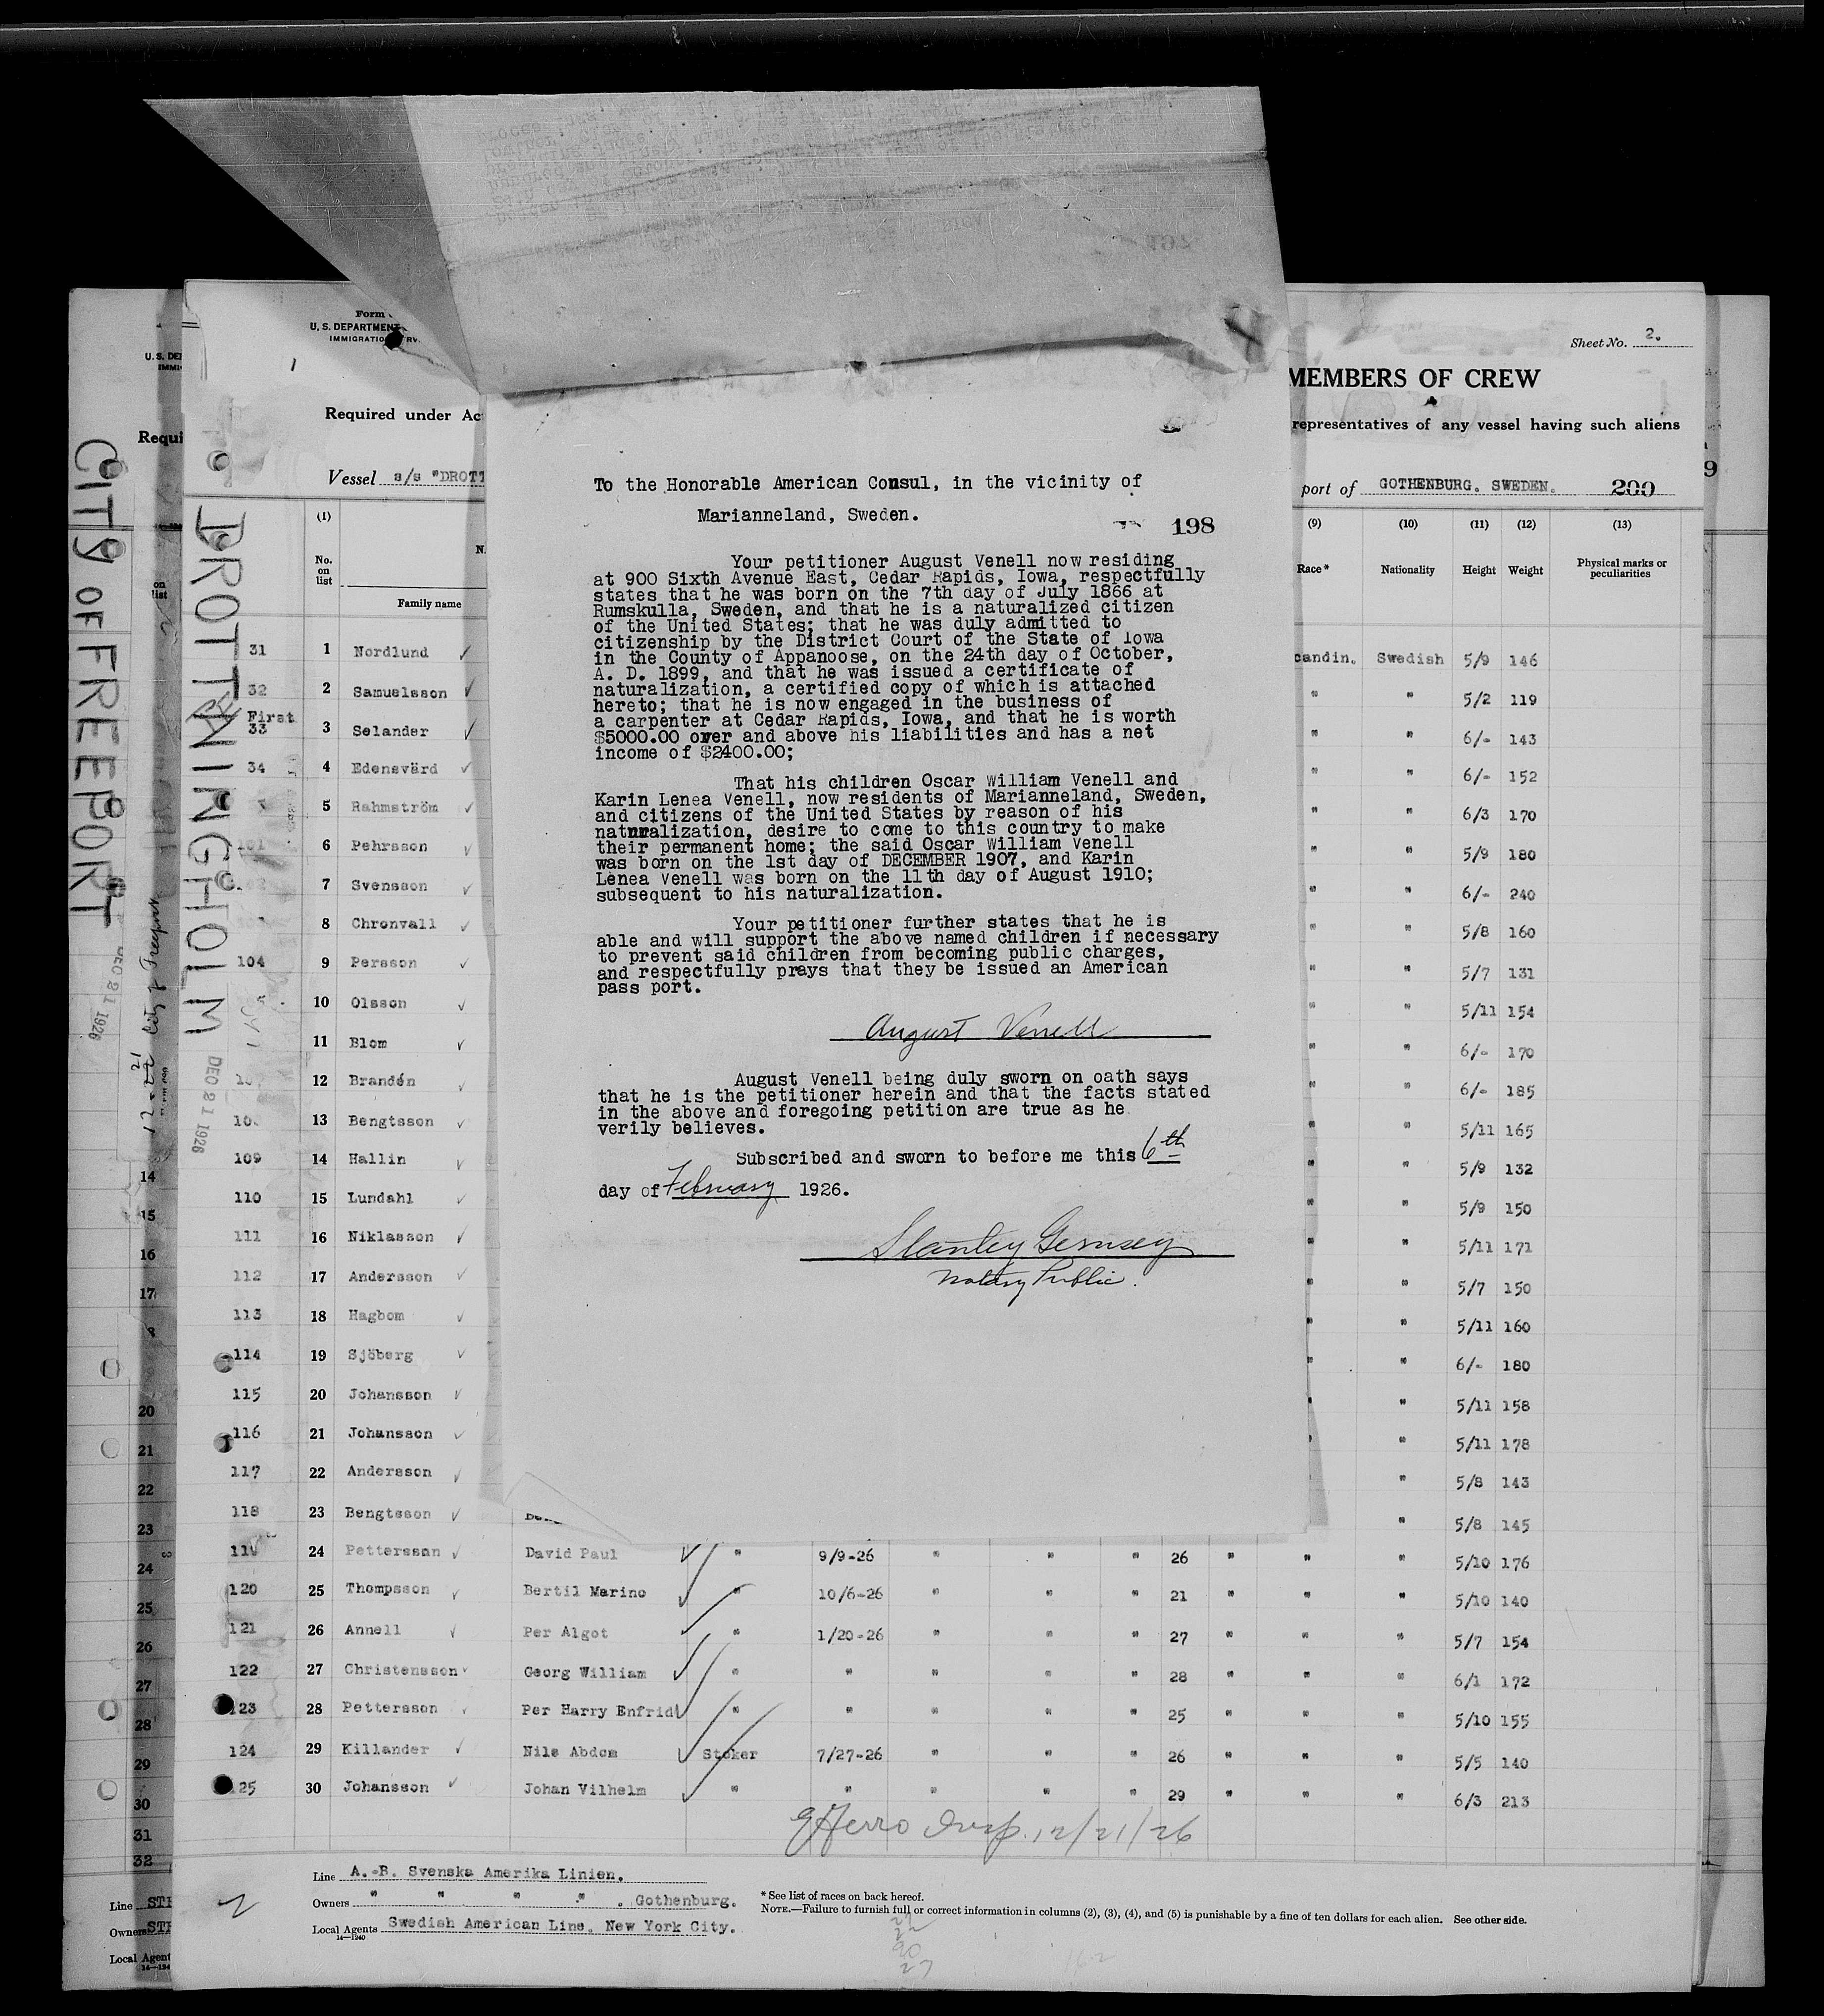 Form
U. S. DEPARTMENT
IMMIGRATIO
Sheet No. 2.
MEMBERS OF CREW
Required under Ac
representatives of any vessel having such aliens
Vessel s/s "DROTT
port of GOTHENBURG. SWEDEN. 200
U. S. DE
IMMI
Requi
CITY OF FREEPORT
DEC 21 1926
City of Freeport
DROTTNINGHOLM
DEC 21 1926
To the Honorable American Consul, in the vicinity of
Marianneland, Sweden.
198
Your petitioner August Venell now residing
at 900 Sixth Avenue East, Cedar Rapids, Iowa, respectfully
states that he was born on the 7th day of July 1866 at
Rumskulla, Sweden, and that he is a naturalized citizen
of the United States; that he was duly admitted to
citizenship by the District Court of the State of Iowa
in the County of Appanoose, on the 24th day of October,
A. D. 1899, and that he was issued a certificate of
naturalization, a certified copy of which is attached
hereto; that he is now engaged in the business of
a carpenter at Cedar Rapids, Iowa, and that he is worth
$5000.00 over and above his liabilities and has a net
income of $2400.00;
That his children Oscar William Venell and
Karin Lenea Venell, now residents of Marianneland, Sweden,
and citizens of the United States by reason of his
naturalization, desire to come to this country to make
their permanent home; the said Oscar William Venell
was born on the 1st day of DECEMBER 1907, and Karin
Lenea Venell was born on the 11th day of August 1910;
subsequent to his naturalization.
Your petitioner further states that he is
able and will support the above named children if necessary
to prevent said children from becoming public charges,
and respectfully prays that they be issued an American
pass port.
August Venell
August Venell being duly sworn on oath says
that he is the petitioner herein and that the facts stated
in the above and foregoing petition are true as he
verily believes.
Subscribed and sworn to before me this 6th
day of February 1926.
Stanley Gernsey
Notary Public.
(1) (9) (10) (11) (12) (13)
No. on list
Family name
Race* Nationality Height Weight Physical marks or peculiarities
31 1 Nordlund candin. Swedish 5/9 146
32 2 Samuelsson " " 5/2 119
First
33 3 Selander " " 6/- 143
34 4 Edensvärd " " 6/- 152
5 Rahmström " " 6/3 170
101 6 Pehrsson " " 5/9 180
7 Svensson " " 6/- 240
8 Chronvall " " 5/8 160
104 9 Persson " " 5/7 131
10 Olsson " " 5/11 154
11 Blom " " 6/- 170
12 Brandén " " 6/- 185
13 Bengtsson " " 5/11 165
109 14 Hallin " " 5/9 132
110 15 Lundahl " " 5/9 150
111 16 Niklasson " " 5/11 171
112 17 Andersson " " 5/7 150
113 18 Hagbom " " 5/11 160
114 19 Sjöberg " " 6/- 180
115 20 Johansson " " 5/11 158
116 21 Johansson " " 5/11 178
117 22 Andersson " 5/8 143
118 23 Bengtsson " 5/8 145
24 Pettersson David Paul " 9/9-26 " " " 26 " " " 5/10 176
120 25 Thompsson Bertil Marino " 10/6-26 " " " 21 " " " 5/10 140
121 26 Annell Per Algot " 1/20-26 " " " 27 " " " 5/7 154
122 27 Christensson Georg William " " " " " 28 " " " 6/1 172
123 28 Pettersson Per Harry Enfrid " " " " " 25 " " " 5/10 155
124 29 Killander Nils Abdom Stoker 7/27-26 " " " 26 " " " 5/5 140
125 30 Johansson Johan Vilhelm " " " " " 29 " " " 6/3 213
12/21/26
Line A.-B. Svenska Amerika Linien.
Owners " " " " . Gothenburg.
Local Agents Swedish American Line. New York City.
14—1240
* See list of races on back hereof.
NOTE.—Failure to furnish full or correct information in columns (2), (3), (4), and (5) is punishable by a fine of ten dollars for each alien. See other side.
on
list
14
15
16
17
20
21
22
23
24
25
26
27
28
29
30
31
32
Line STE
Owners STE
Local Agent